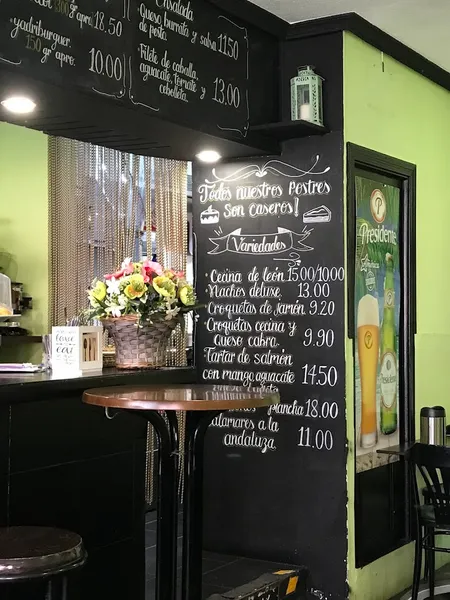 300 gr apro. 18.50
yadriburguer.
150 gr apro. 10.00
Ensalada
Queso burrata y salsa 11.50
de pesto.
Filete de caballa,
aguacate, tomate y 13.00
cebolleta.
Todos nuestros Postres
Son caseros!
Variedades
Cecina de león. 15.00/10.00
Nachos deluxe. 13.00
Croquetas de jamón. 9.20
Croquetas cecina y
Queso cabra. 9.90
Tartar de salmón
con mango, aguacate 14.50
plancha 18.00
alamares a la
andaluza. 11.00
Presidente